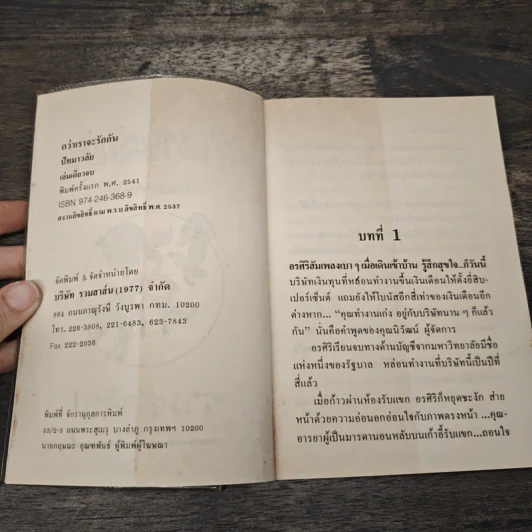 กว่าเราจะรักกัน
ปัทมาวลัย
เล่มเดียวจบ
พิมพ์ครั้งแรก พ.ศ. 2541
ISBN 974-246-368-9
สงวนลิขสิทธิ์ ตาม พ.ร.บ.ลิขสิทธิ์ พ.ศ. 2537
จัดพิมพ์ & จัดจำหน่ายโดย
บริษัท รวมสาส์น (1977) จำกัด
864 ถนนภาณุรังษี วังบูรพา กทม. 10200
โทร. 226-3808, 221-6483, 623-7843
Fax. 222-2036
พิมพ์ที่ จักรานุกูลการพิมพ์
53/2-3 ถนนพระสุเมรุ บางลำภู กรุงเทพฯ 10200
นายกฤษณะ คุณฑพันธ์ ผู้พิมพ์ผู้โฆษณา
บทที่ 1
อรศิริสัมเพลงเบา ๆ เมื่อเดินเข้าบ้าน รู้สึกสุขใจ..ก็วันนี้
บริษัทเงินทุนที่หล่อนทำงานขึ้นเงินเดือนให้ตั้งยี่สิบ-
เปอร์เซ็นต์ แถมยังให้โบนัสอีกสี่เท่าของเงินเดือนอีก
ต่างหาก... “คุณทำงานเก่ง อยู่กับบริษัทนาน ๆ ก็แล้ว
กัน” นั่นคือคำพูดของคุณนิวัฒน์ ผู้จัดการ
อรศิริเรียนจบทางด้านบัญชีจากมหาวิทยาลัยมีชื่อ
แห่งหนึ่งของรัฐบาล หล่อนทำงานที่บริษัทนี้เป็นปีที่
สี่แล้ว
เมื่อก้าวผ่านห้องรับแขก อรศิริก็หยุดชะงัก ส่าย
หน้าด้วยความอ่อนอกอ่อนใจกับภาพตรงหน้า ...คุณ-
อารยาผู้เป็นมารดานอนหลับบนเก้าอี้รับแขก...ถอนใจ